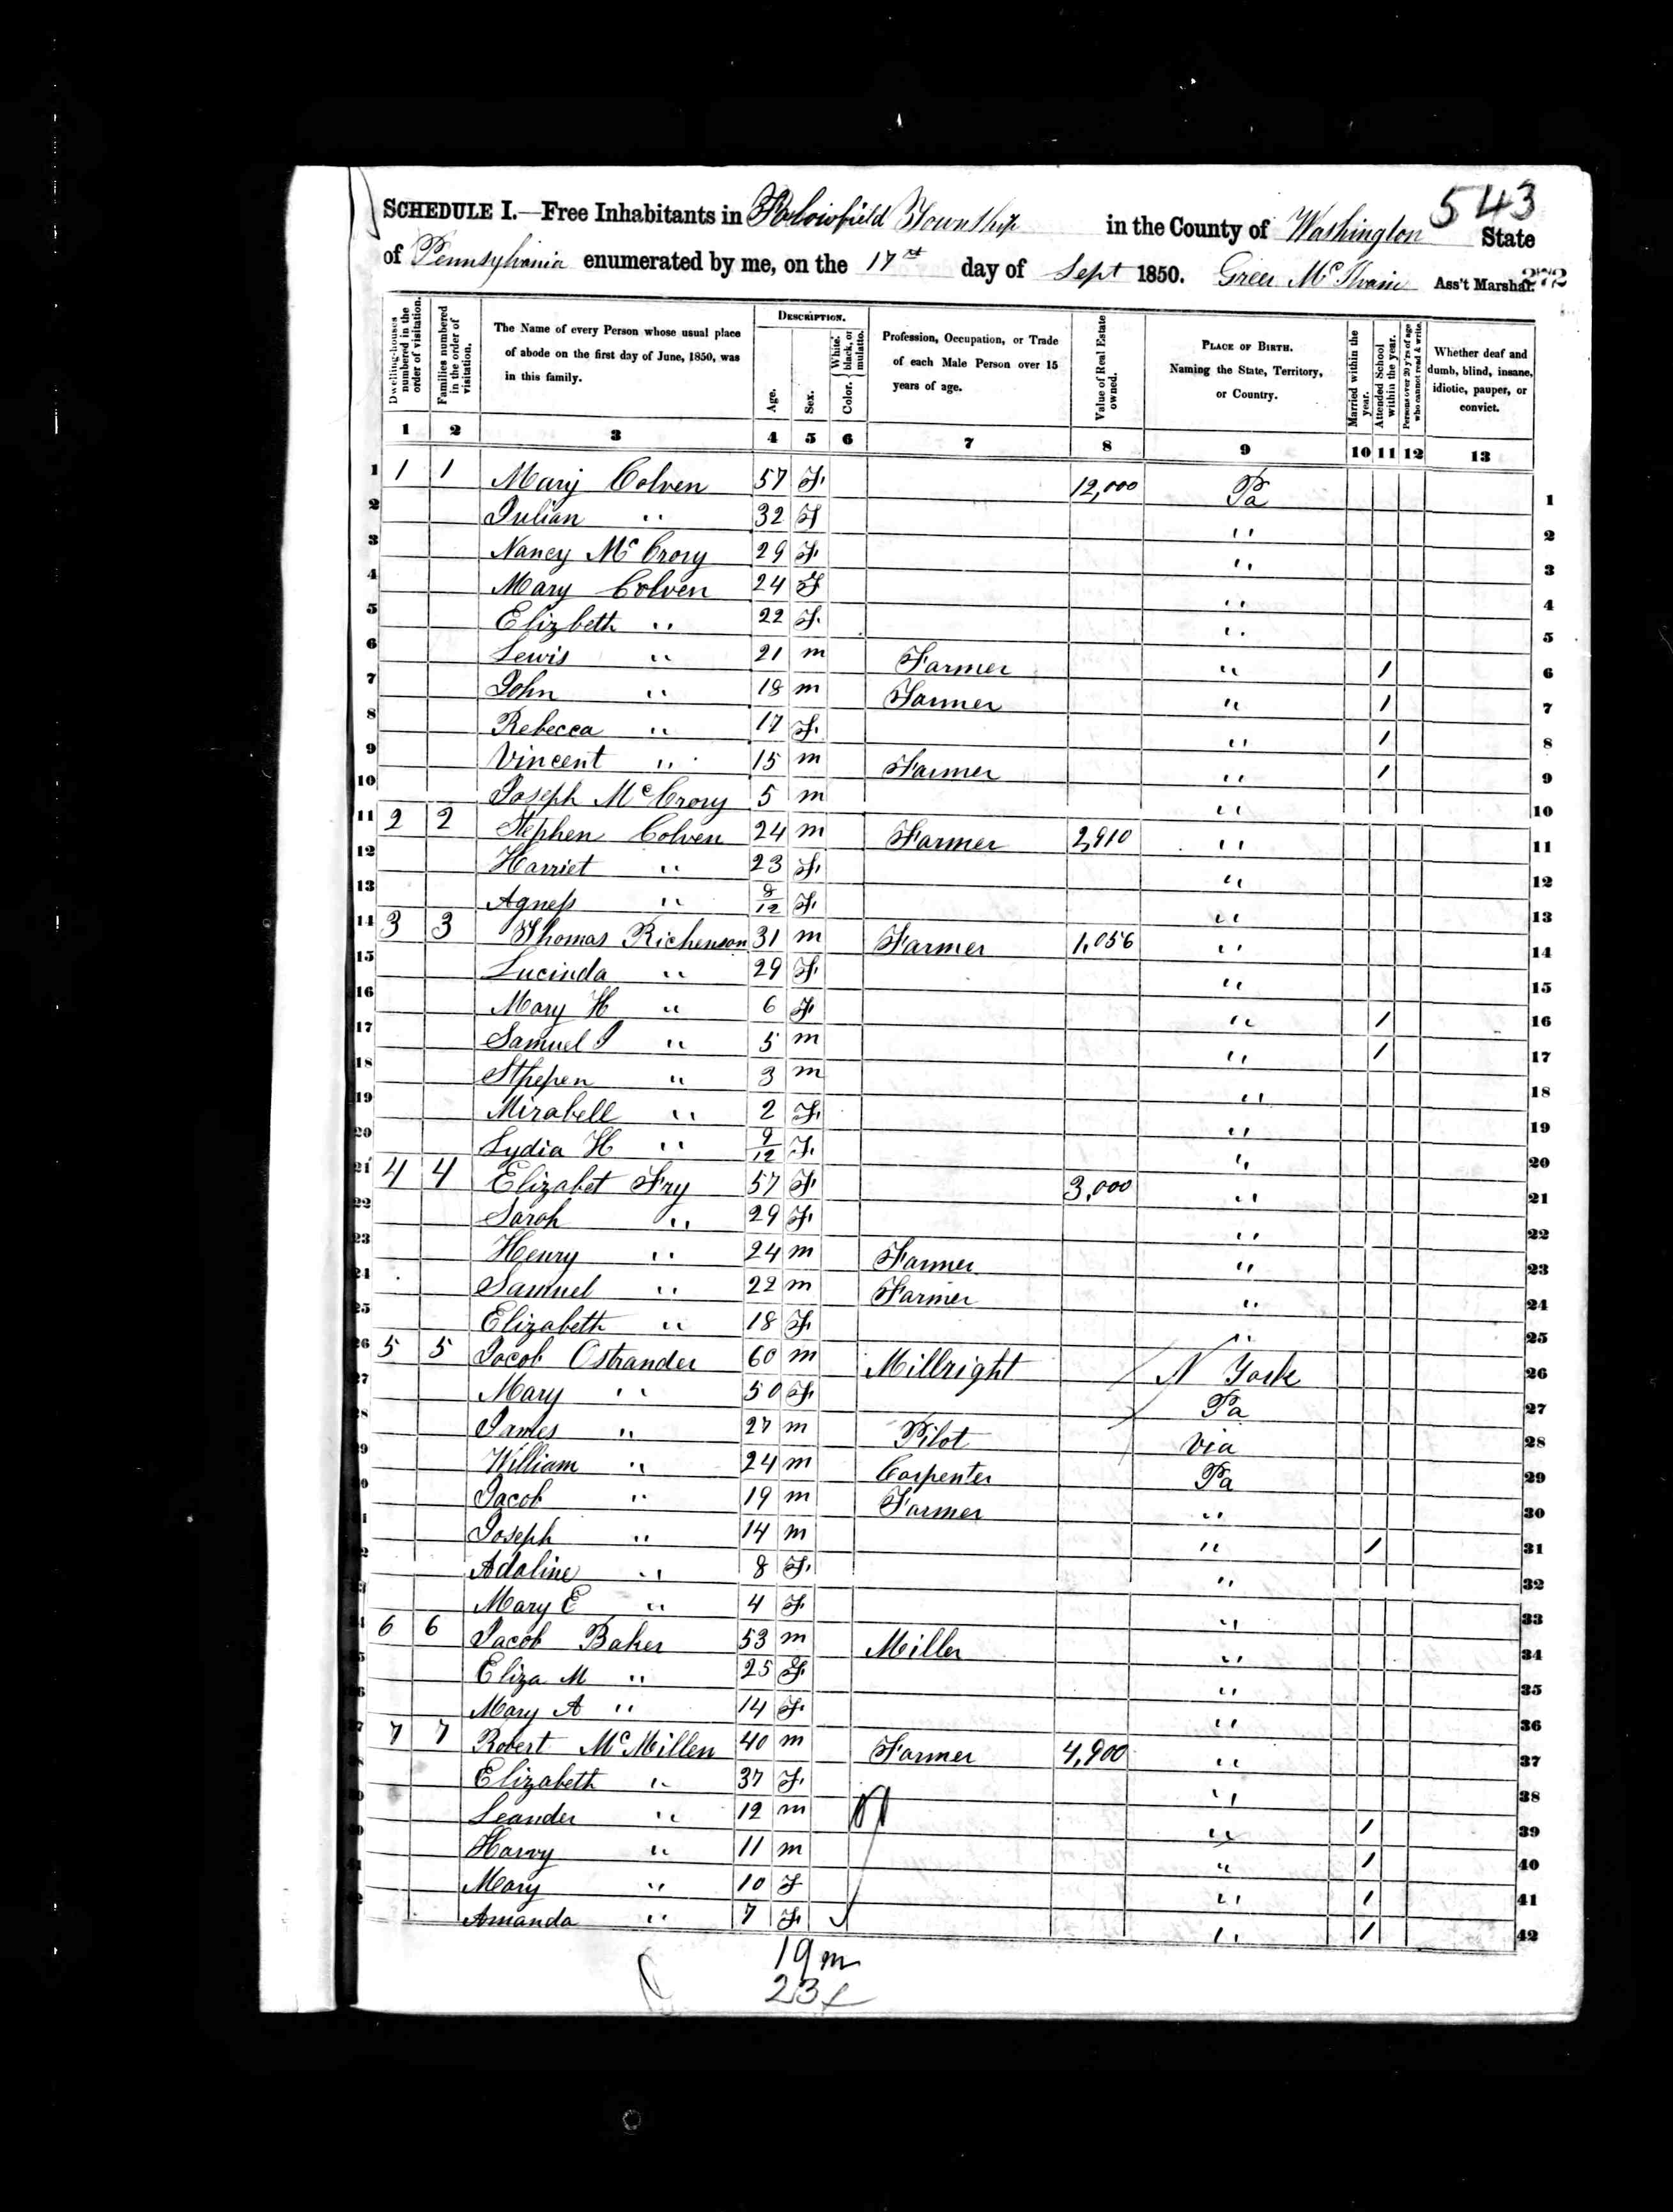 543
SCHEDULE I.—Free Inhabitants in Township in the County of Washington State
of Pennsylvania enumerated by me, on the 17 day of Sept 1850. Green Ass't Marshal. 272
Dwelling-houses numbered in the order of visitation.
Families numbered in the order of visitation.
The Name of every Person whose usual place of abode on the first day of June, 1850, was in this family.
DESCRIPTION.
Age.
Sex.
Color. White, black, or mulatto.
Profession, Occupation, or Trade of each Male Person over 15 years of age.
Value of Real Estate owned.
PLACE OF BIRTH. Naming the State, Territory, or Country.
Married within the year.
Attended School within the year.
Persons over 20 y'rs of age who cannot read & write.
Whether deaf and dumb, blind, insane, idiotic, pauper, or convict.
1 2 3 4 5 6 7 8 9 10 11 12 13
1 1 1 Mary Colven 57 F. 12,000 Pa 1
2 Julian " 32 F " 2
3 Nancy Mc Crory 29 F. " 3
4 Mary Colven 24 F " 4
5 Elizbeth " 22 F. " 5
6 Lewis " 21 m Farmer " / 6
7 John " 18 m Farmer " / 7
8 Rebecca " 17 F. " / 8
9 Vincent " 15 m Farmer " / 9
10 Joseph Mc Crory 5 m " 10
11 2 2 Stephen Colven 24 m Farmer 2,910 " 11
12 Harriet " 23 F. " 12
13 Agness " 8/12 F. " 13
14 3 3 Thomas Richenson 31 m Farmer 1,056 " 14
15 Lucinda " 29 F. " 15
16 Mary H " 6 F. " / 16
17 Samuel J " 5 m " / 17
18 Sthepen " 3 m " 18
19 Mirabell " 2 F. " 19
20 Lydia H " 9/12 F. " 20
21 4 4 Elizabet Fry 57 F. 3,000 " 21
22 Sarah " 29 F. " 22
23 Henry " 24 m Farmer " 23
24 Samuel " 22 m Farmer " 24
25 Elizabeth " 18 F. " 25
26 5 5 Jacob Ostrander 60 m Millright / N York 26
27 Mary " 50 F. Pa 27
28 James " 27 m Pilot / Via 28
29 William " 24 m Carpenter Pa 29
30 Jacob " 19 m Farmer " 30
31 Joseph " 14 m " / 31
32 Adaline " 8 F. " 32
33 Mary E " 4 F. " 33
34 6 6 Jacob Baker 53 m Miller " 34
35 Eliza M " 25 F. " 35
36 Mary A " 14 F. " 36
37 7 7 Robert Mc Millen 40 m Farmer 4,900 " 37
38 Elizabeth " 37 F. " 38
39 Leander " 12 m " / 39
40 Harvy " 11 m " / 40
41 Mary " 10 F " / 41
42 Amanda " 7 F. " / 42
19 m
23 f